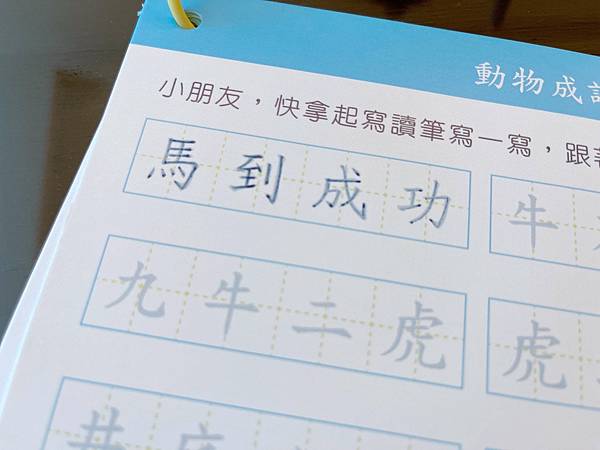 動物成語
小朋友，快拿起寫讀筆寫一寫，跟著
馬到成功 牛
九牛二虎 虎
井底